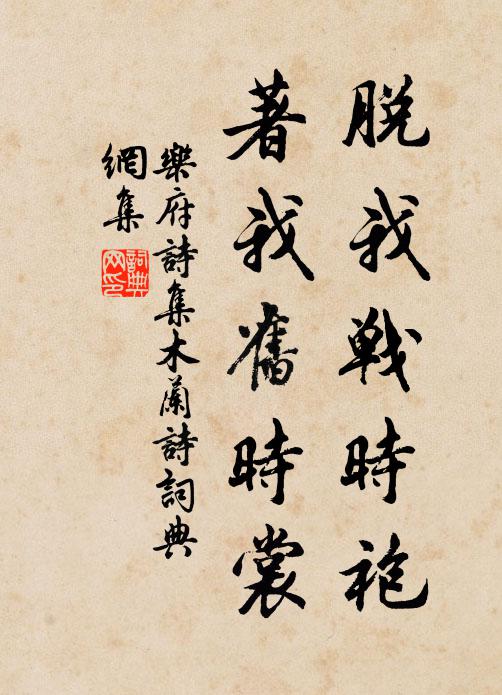 脱我戰時袍
著我舊時裳
樂府詩集木蘭詩詞典
網集
詞典
网印